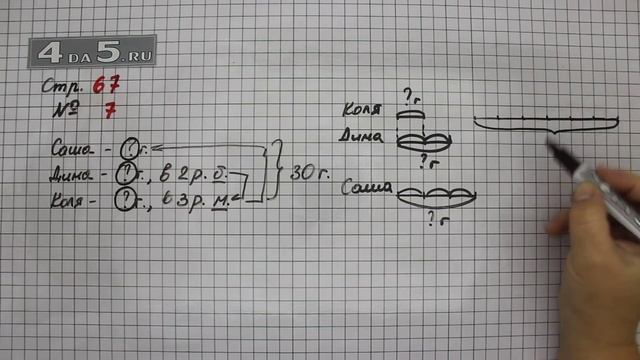 4 DA 5.RU
Стр. 67
№ 7
Саша - ? г.
Дима - ? г., в 2 р. б.
Коля - ? г., в 3 р. м.
30 г.
? г
Коля
Дима
? г
Саша
? г